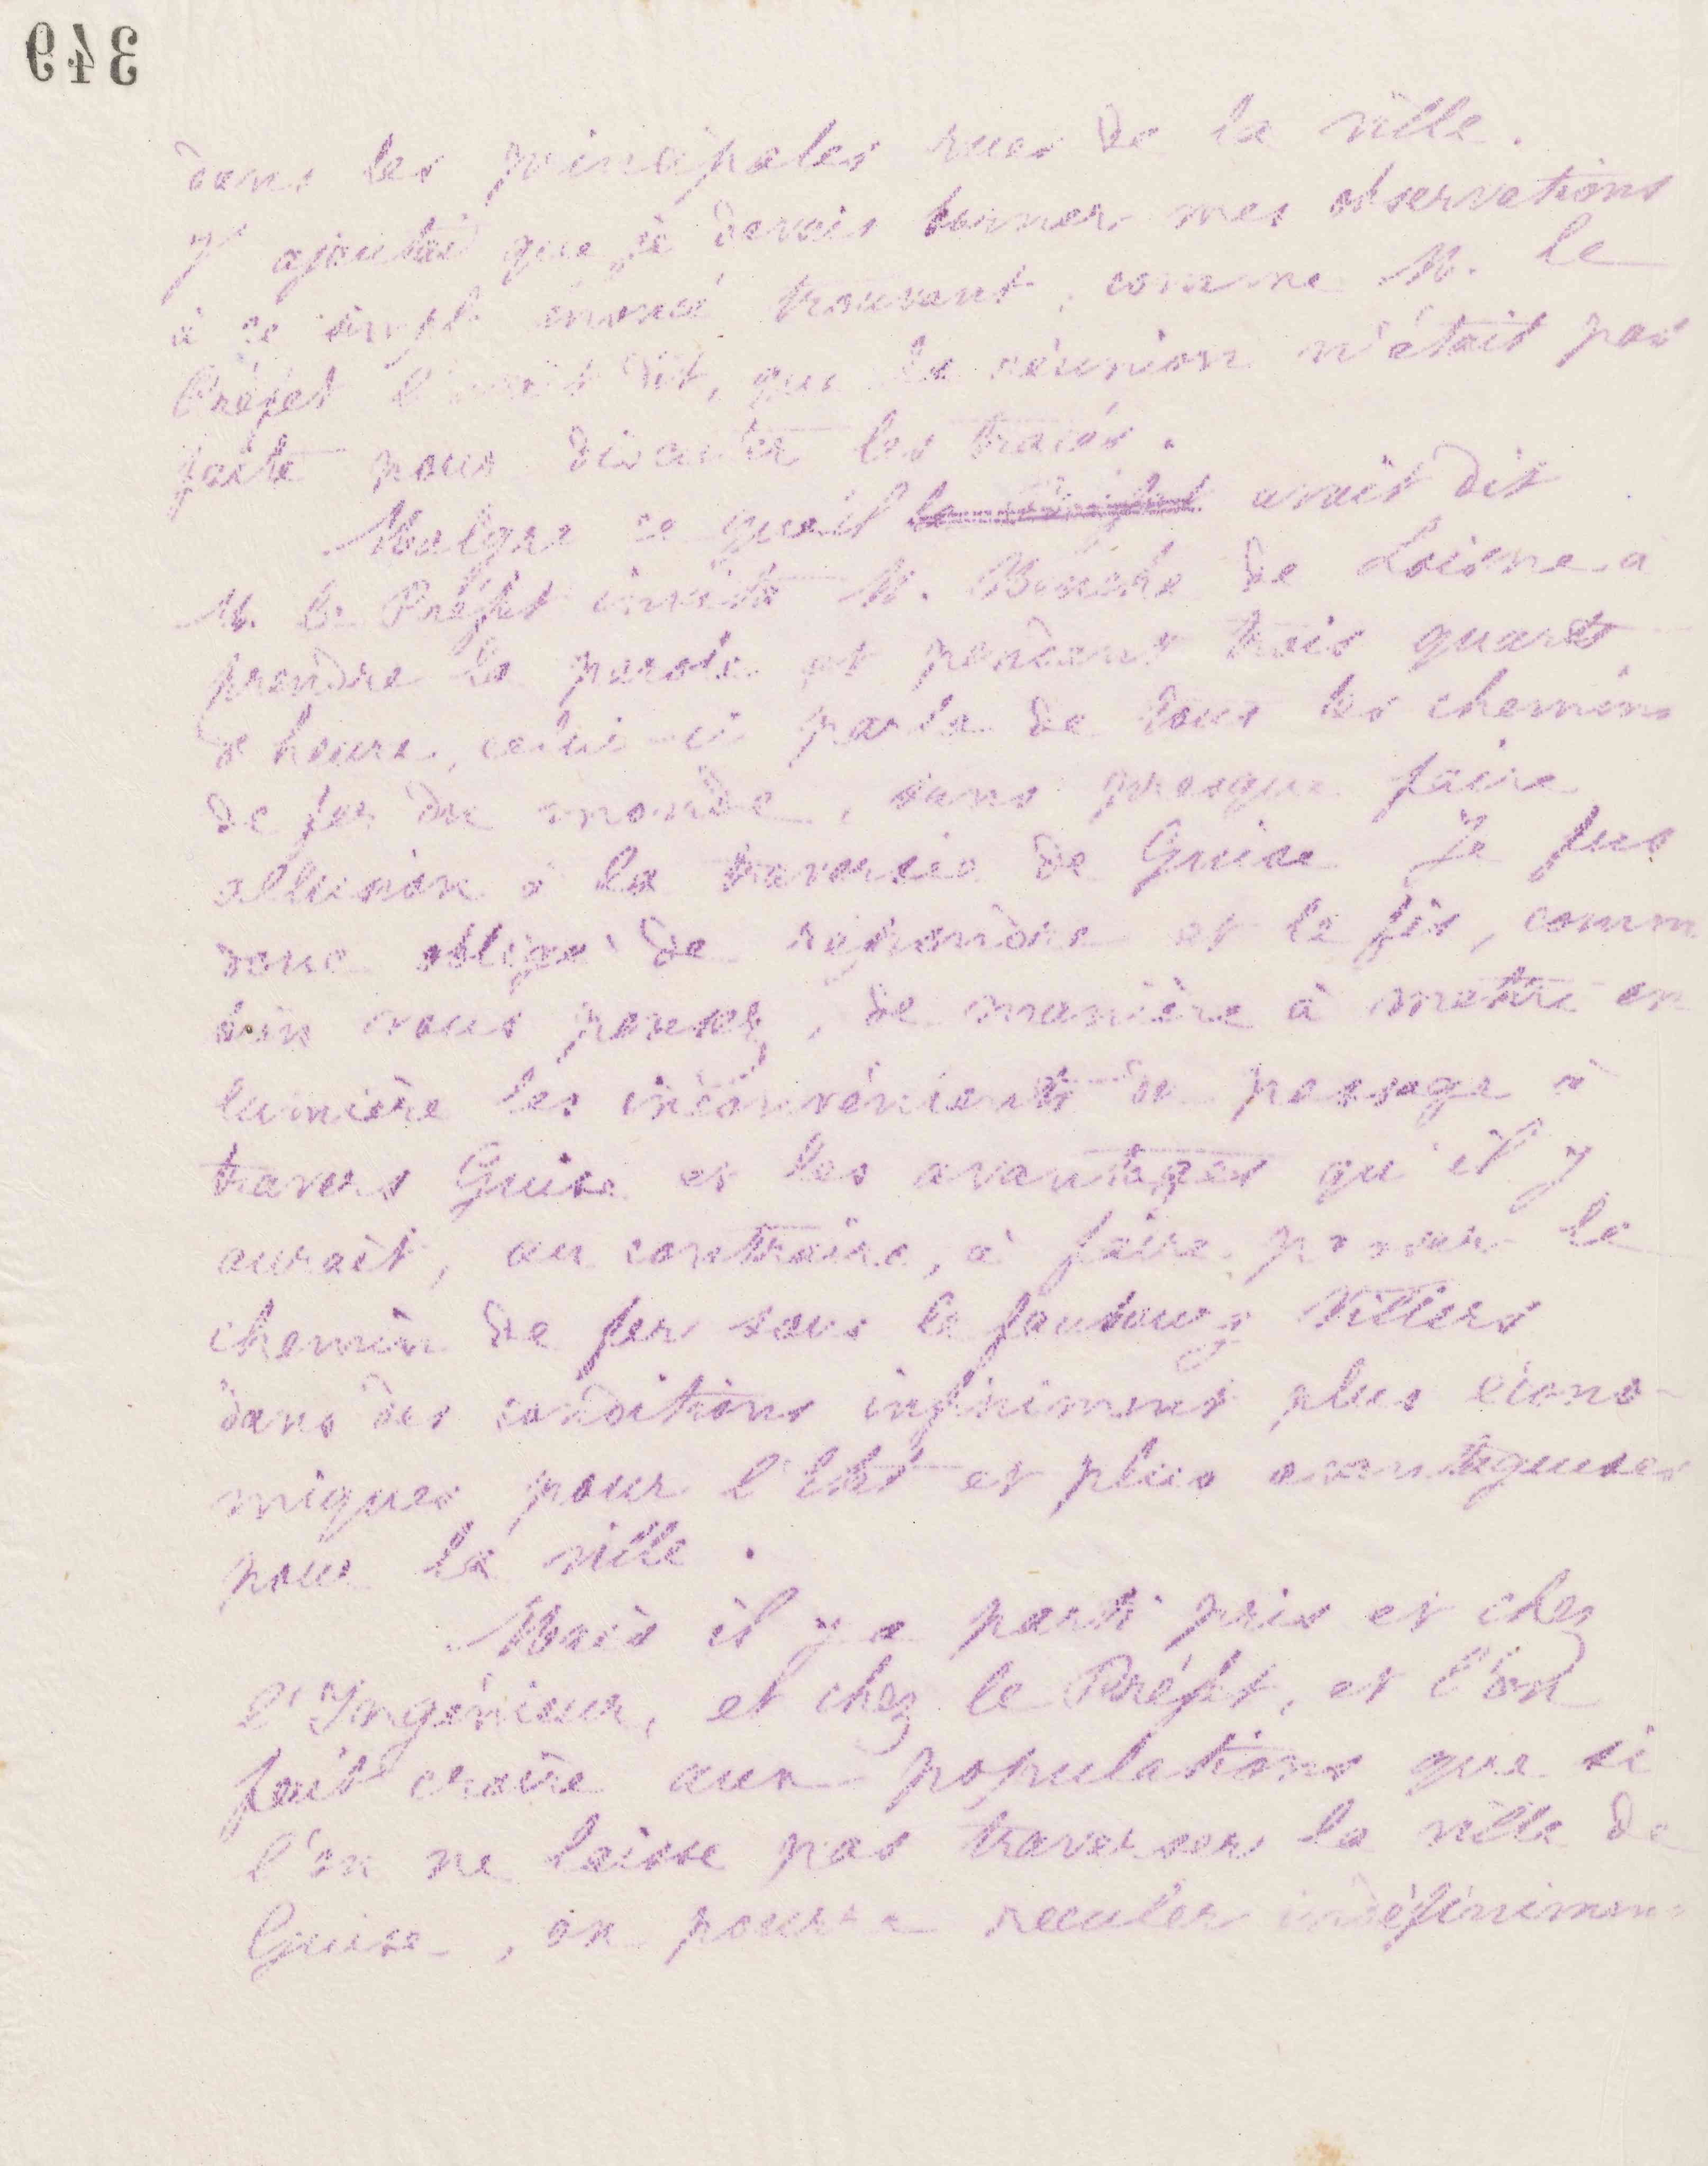 349
dans les principales rues de la ville.
J'ajoutai que je devais borner mes observations
à ce simple énoncé trouvant, comme M. le
Préfet l'avait dit, que la réunion n'était pas
faite pour discuter les tracés.
Malgré ce qu'il avait dit
M. le Préfet invita M. de Loisne a
prendre la parole et pendant trois quarts
d'heure, celui-ci parla de tous les chemins
de fer du monde, sans presque faire
allusion à la traversée de Guise Je fus
donc obligé de répondre et le fis, comme
bien vous pensez, de manière à mettre en
lumière les inconvénients du passage à
travers Guise et les avantages qu'il y
aurait, au contraire, à faire passer le
chemin de fer sous le faubourg Villers
dans des conditions infiniment plus écono-
miques pour l'Etat et plus avantageuses
pour la ville.
Mais il y a parti pris et chez
l'Ingénieur, et chez le Préfet, et l'on
fait croire aux populations que si
l'on ne laisse pas traverser la ville de
Guise, on pourra reculer indéfiniment